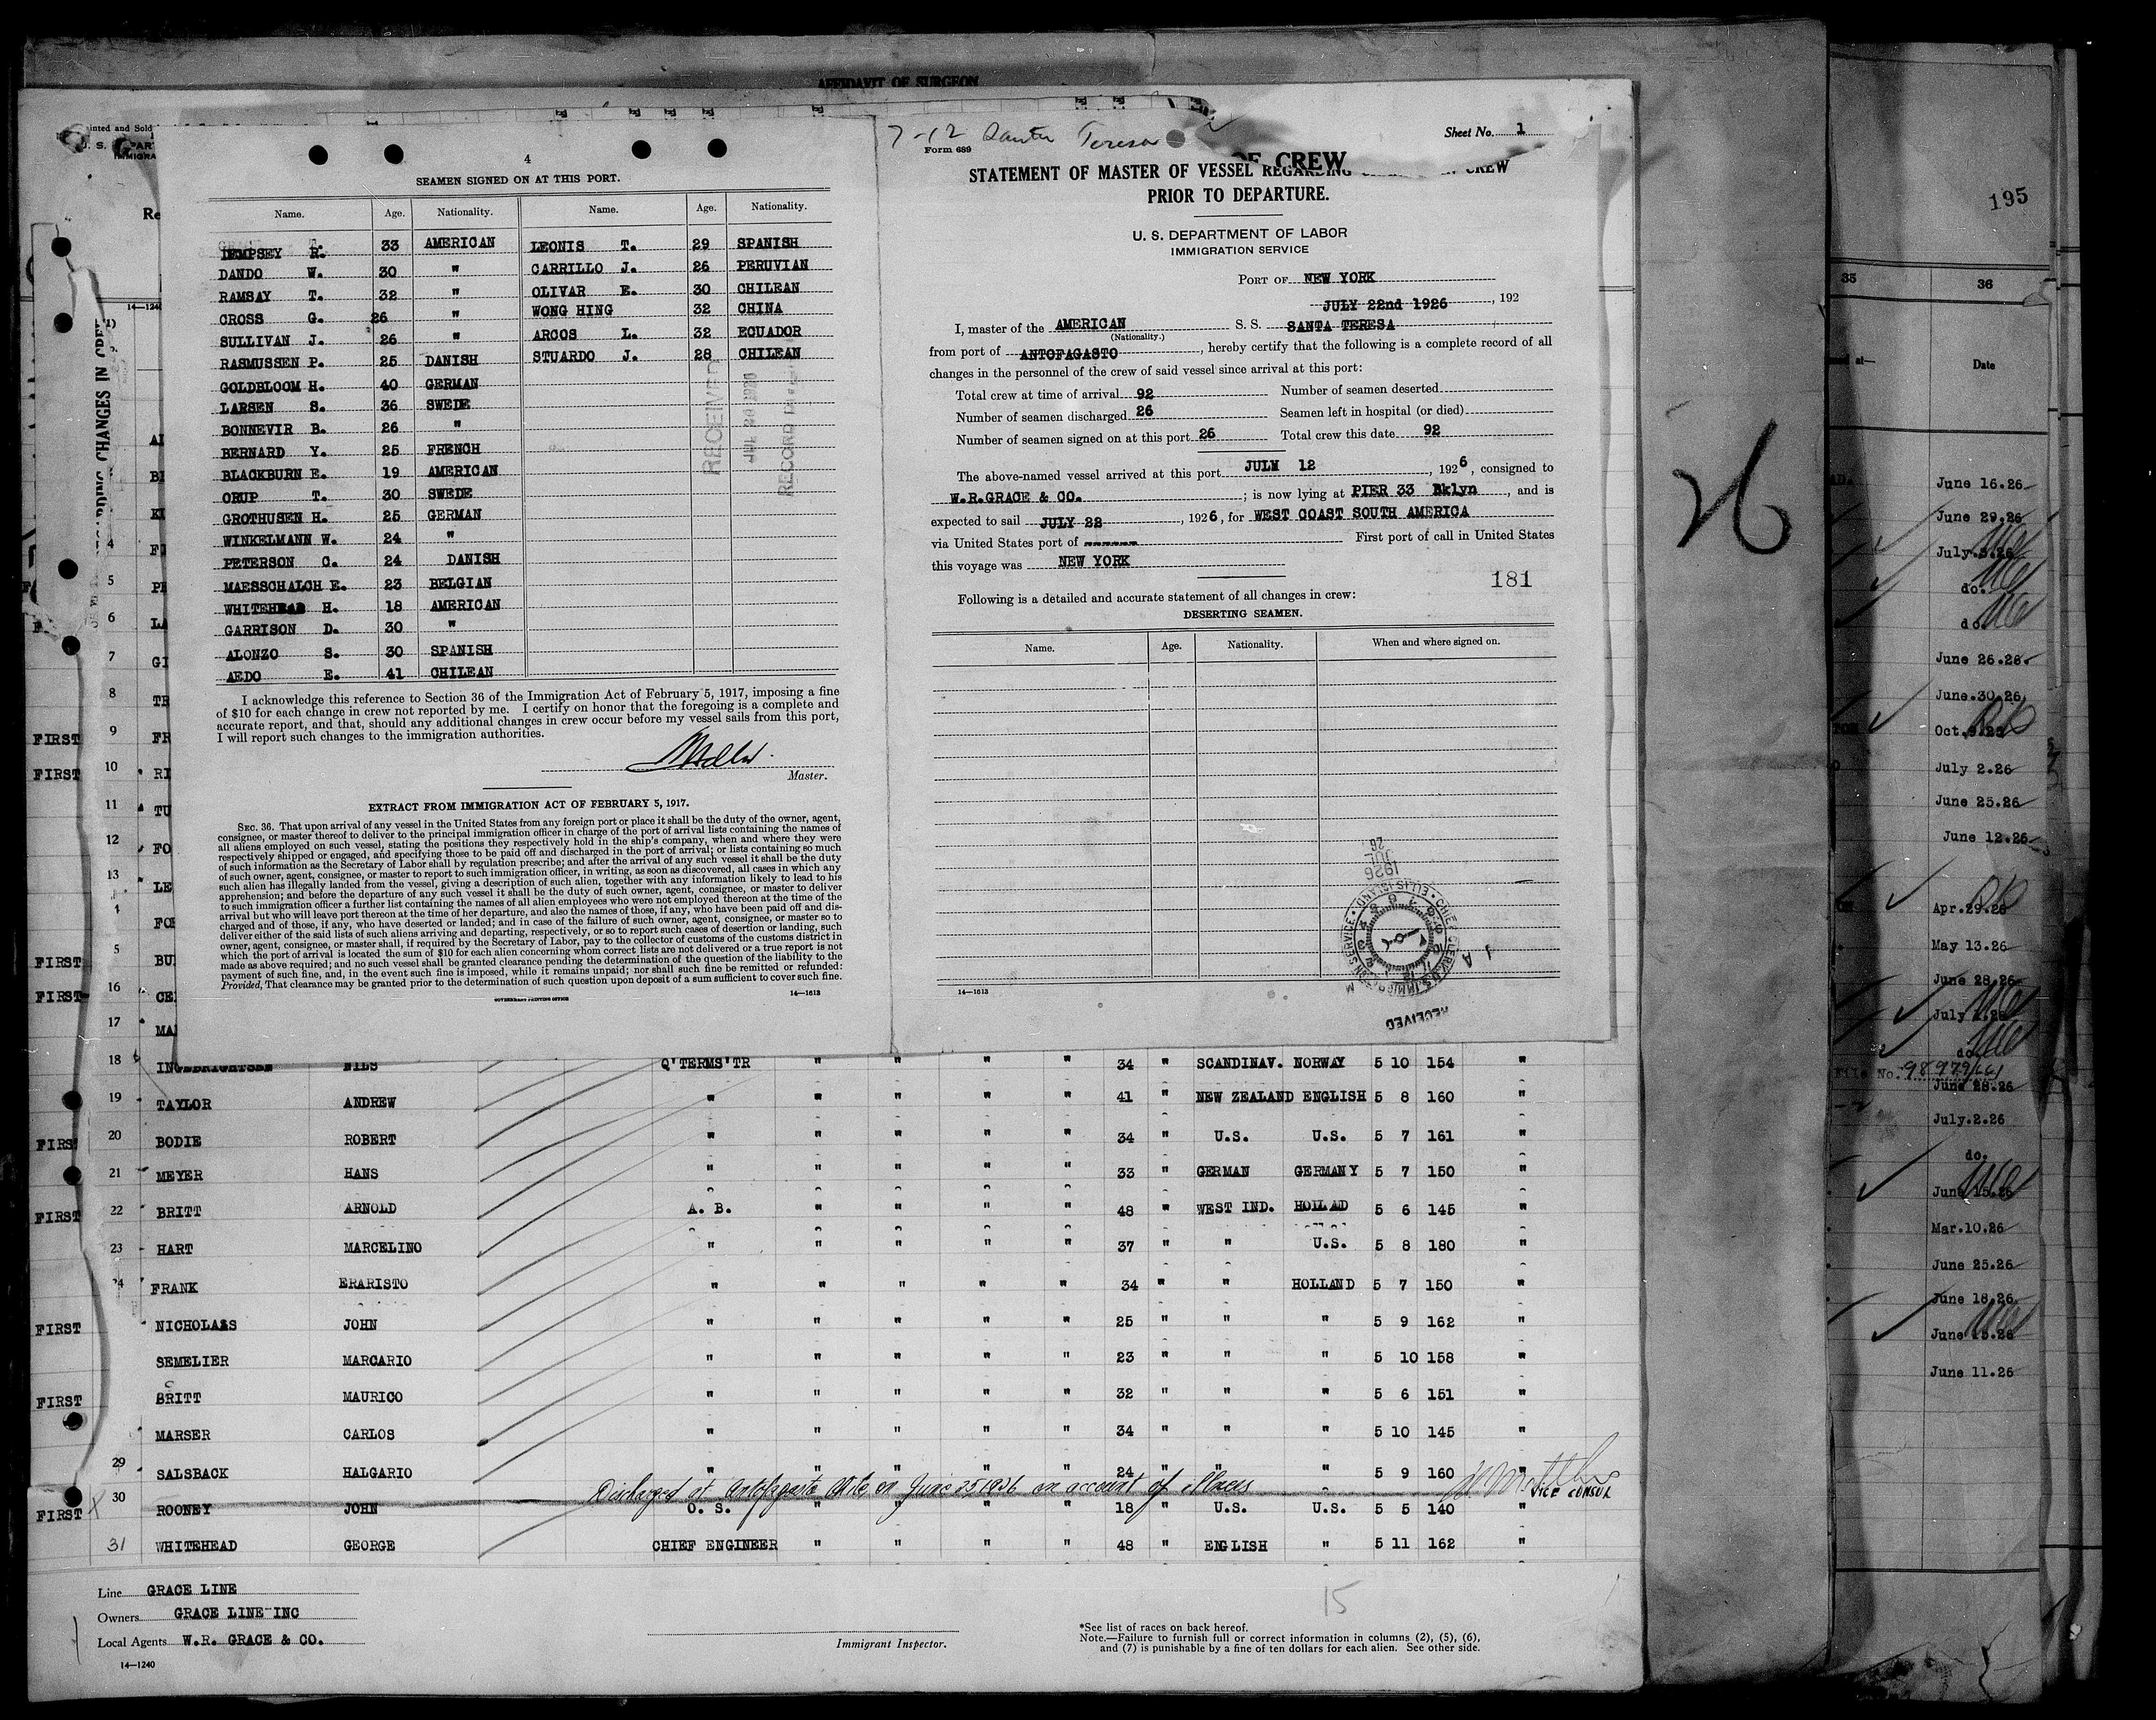 AFFIDAVIT OF SURGEON
4
SEAMEN SIGNED ON AT THIS PORT.
Name. Age. Nationality. Name. Age. Nationality.
DEMPSEY R. 33 AMERICAN LEONIS T. 29 SPANISH
DANDO W. 30 " CARRILLO J. 26 PERUVIAN
RAMSAY T. 32 " OLIVAR E. 30 CHILEAN
CROSS G. 26 " WONG HING 32 CHINA
SULLIVAN J. 26 " ARCOS L. 32 ECUADOR
RASMUSSEN P. 25 DANISH STUARDO J. 28 CHILEAN
GOLDBLOOM H. 40 GERMAN
LARSEN S. 36 SWEDE
BONNEVIR B. 26 "
BERNARD Y. 25 FRENCH
BLACKBURN E. 19 AMERICAN
ORUP T. 30 SWEDE
GROTHUSEN H. 25 GERMAN
WINKELMANN W. 24 "
PETERSON C. 24 DANISH
MAESSCHALCH E. 23 BELGIAN
WHITEHEAD H. 18 AMERICAN
GARRISON D. 30 "
ALONZO S. 30 SPANISH
AEDO E. 41 CHILEAN
RECEIVED
RECORD
I acknowledge this reference to Section 36 of the Immigration Act of February 5, 1917, imposing a fine
of $10 for each change in crew not reported by me. I certify on honor that the foregoing is a complete and
accurate report, and that, should any additional changes in crew occur before my vessel sails from this port,
I will report such changes to the immigration authorities.
Master.
EXTRACT FROM IMMIGRATION ACT OF FEBRUARY 5, 1917.
SEC. 36. That upon arrival of any vessel in the United States from any foreign port or place it shall be the duty of the owner, agent,
consignee, or master thereof to deliver to the principal immigration officer in charge of the port of arrival lists containing the names of
all aliens employed on such vessel, stating the positions they respectively hold in the ship's company, when and where they were
respectively shipped or engaged, and specifying those to be paid off and discharged in the port of arrival; or lists containing so much
of such information as the Secretary of Labor shall by regulation prescribe; and after the arrival of any such vessel it shall be the duty
of such owner, agent, consignee, or master to report to such immigration officer, in writing, as soon as discovered, all cases in which any
such alien has illegally landed from the vessel, giving a description of such alien, together with any information likely to lead to his
apprehension; and before the departure of any such vessel it shall be the duty of such owner, agent, consignee, or master to deliver
to such immigration officer a further list containing the names of all alien employees who were not employed thereon at the time of the
arrival but who will leave port thereon at the time of her departure, and also the names of those, if any, who have been paid off and dis-
charged and of those, if any, who have deserted or landed; and in case of the failure of such owner, agent, consignee, or master so to
deliver either of the said lists of such aliens arriving and departing, respectively, or so to report such cases of desertion or landing, such
owner, agent, consignee, or master shall, if required by the Secretary of Labor, pay to the collector of customs of the customs district in
which the port of arrival is located the sum of $10 for each alien concerning whom correct lists are not delivered or a true report is not
made as above required; and no such vessel shall be granted clearance pending the determination of the question of the liability to the
payment of such fine, and, in the event such fine is imposed, while it remains unpaid; nor shall such fine be remitted or refunded:
Provided, That clearance may be granted prior to the determination of such question upon deposit of a sum sufficient to cover such fine.
GOVERNMENT PRINTING OFFICE
14—1613
7-12 Santa Teresa
Form 689
Sheet No. 1
OF CREW
STATEMENT OF MASTER OF VESSEL REGARDING CREW
PRIOR TO DEPARTURE.
U. S. DEPARTMENT OF LABOR
IMMIGRATION SERVICE
PORT OF NEW YORK
JULY 22nd 1926, 192
I, master of the AMERICAN S. S. SANTA TERESA
(Nationality.)
from port of ANTOFAGASTO, hereby certify that the following is a complete record of all
changes in the personnel of the crew of said vessel since arrival at this port:
Total crew at time of arrival 92 Number of seamen deserted
Number of seamen discharged 26 Seamen left in hospital (or died)
Number of seamen signed on at this port 26 Total crew this date 92
The above-named vessel arrived at this port JULY 12, 1926, consigned to
W.R.GRACE & CO.; is now lying at PIER 33 Bklyn, and is
expected to sail JULY 22, 1926, for WEST COAST SOUTH AMERICA
via United States port of First port of call in United States
this voyage was NEW YORK
181
Following is a detailed and accurate statement of all changes in crew:
DESERTING SEAMEN.
Name. Age. Nationality. When and where signed on.
1926 JUL 26
RECEIVED
14—1613
18 NILS Q'TERMS'TR " " " " 34 " SCANDINAV. NORWAY 5 10 154 "
19 TAYLOR ANDREW " " " " " 41 " NEW ZEALAND ENGLISH 5 8 160 "
FIRST 20 BODIE ROBERT " " " " " 34 " U.S. U.S. 5 7 161 "
21 MEYER HANS " " " " " 33 " GERMAN GERMANY 5 7 150 "
FIRST 22 BRITT ARNOLD A. B. " " " " 48 " WEST IND. HOLLAD 5 6 145 "
23 HART MARCELINO " " " " " 37 " " U.S. 5 8 180 "
24 FRANK ERARISTO " " " " " 34 " " HOLLAND 5 7 150 "
FIRST NICHOLAAS JOHN " " " " " 25 " " " 5 9 162 "
SEMELIER MARCARIO " " " " " 23 " " " 5 10 158 "
FIRST BRITT MAURICO " " " " " 32 " " " 5 6 151 "
MARSER CARLOS " " " " " 34 " " " 5 10 145 "
29 SALSBACK HALGARIO " " " " " 24 " " " 5 9 160 "
Discharged at Antofagasta Chile on June 25 1926 on account of illness
VICE CONSUL
FIRST 30 ROONEY JOHN O. S. " " " " 18 " U.S. U.S. 5 5 140 "
31 WHITEHEAD GEORGE CHIEF ENGINEER " " " " 48 " ENGLISH " 5 11 162 "
Line GRACE LINE
Owners GRACE LINE INC
Local Agents W.R. GRACE & CO.
14—1240
15
Immigrant Inspector.
*See list of races on back hereof.
Note.—Failure to furnish full or correct information in columns (2), (5), (6),
and (7) is punishable by a fine of ten dollars for each alien. See other side.
26
195
35 36
Date
June 16.26
June 29.26
July.3.26
do.
do.
June 26.26.
June.30.26
Oct.9.25
July 2.26
June 25.26
June 12.26
Apr.29.26
May 13.26
June 28.26
July 1.26
do.
File No. 98979/661
June 28.26
July.2.26
do.
June 15.26
Mar.10.26
June 25.26
June 18.26
June 15.26
June 11.26